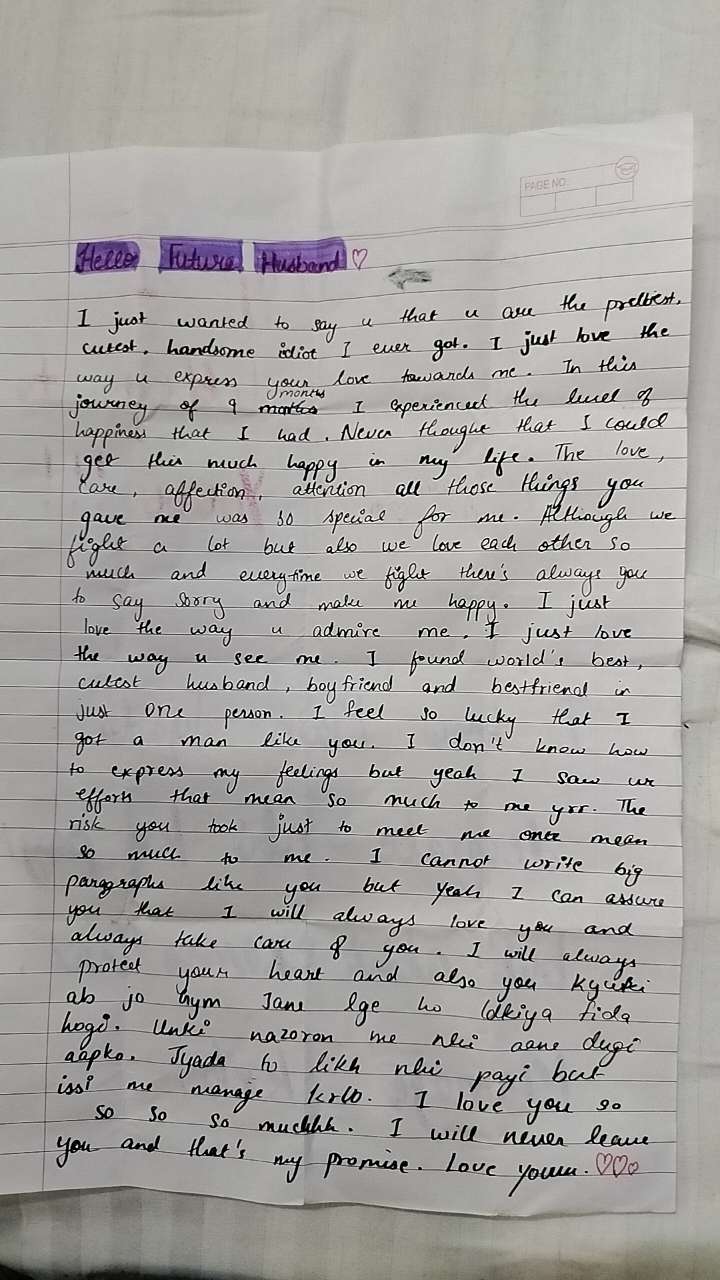 PAGE NO:
Hello Future Husband ♡
I just wanted to say u that u are the prettiest,
cutest, handsome idiot I ever got. I just love the
way u express your love towards me. In this
journey of 9 months I experienced the level of
happiness that I had. Never thought that I could
get this much happy in my life. The love,
care, affection, attention all those things you
gave me was so special for me. Although we
fight a lot but also we love each other so
much and everytime we fight there's always you
to say sorry and make me happy. I just
love the way u admire me. I just love
the way u see me. I found world's best,
cutest husband, boyfriend and bestfriend in
just one person. I feel so lucky that I
got a man like you. I don't know how
to express my feelings but yeah I saw ur
efforts that mean so much to me yrr. The
risk you took just to meet me once mean
so much to me. I cannot write big
paragraphs like you but yeah I can assure
you that I will always love you and
always take care of you. I will always
protect your heart and also you kyuki
ab jo Gym Jane lge ho ldkiya fida
hogi. Unki nazoron me nhi aane dugi
aapko. Jyada to likh nhi payi but
issi me manage krlo. I love you so
so so so muchhh. I will never leave
you and that's my promise. Love youuu. ♡♡♡